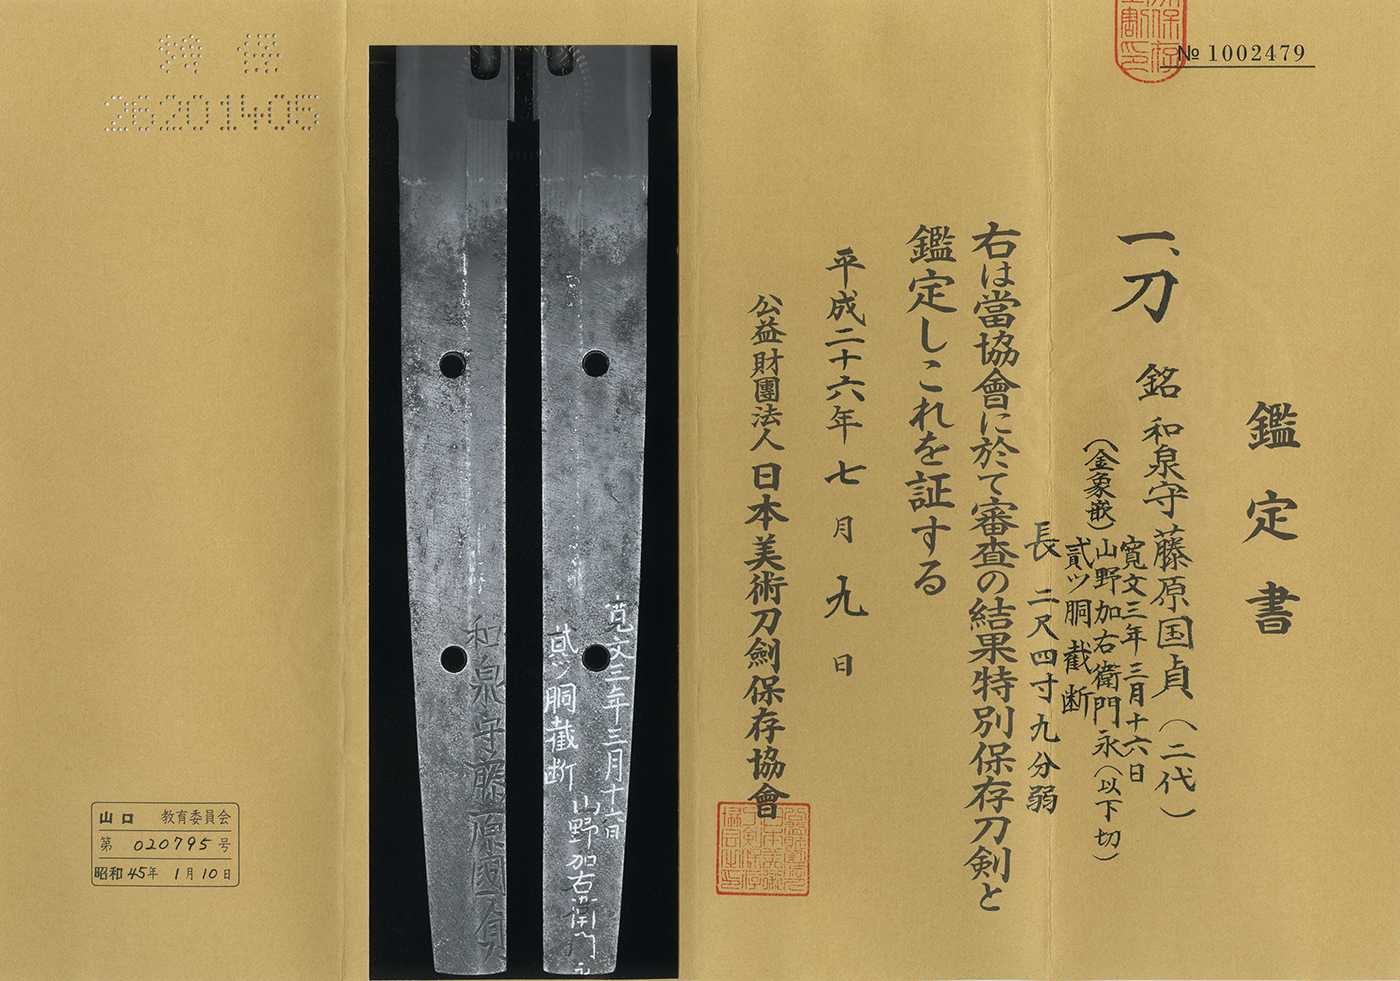 № 1002479
鑑定書
一、刀 銘 和泉守藤原国貞(二代)
(金象嵌)
寛文三年三月十六日
山野加右衛門永(以下切)
貳ツ胴截断
長 二尺四寸九分弱
右は當協會に於て審査の結果特別保存刀剣と
鑑定しこれを証する
平成二十六年七月九日
公益財團法人日本美術刀劍保存協會
和泉守藤原国貞
寛文三年三月十六日
山野加右衛門永
貳ツ胴截断
特保
26201405
山口 教育委員会
第 020795 号
昭和45年 1月10日